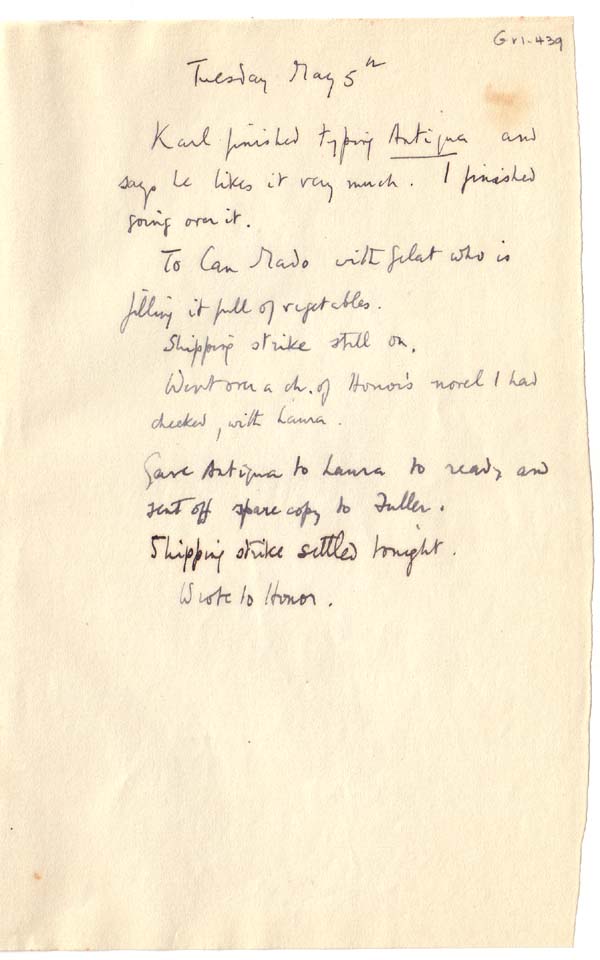 Gr1-439
Tuesday May 5th
Karl finished typing Antigua and
says he likes it very much. I finished
going over it.
To Can Mado with Gelat who is
filling it full of vegetables.
Shipping strike still on.
Went over a ch. of Honor's novel I had
checked, with Laura.
Gave Antigua to Laura to ready and
sent off spare copy to Fuller.
Shipping strike settled tonight.
Wrote to Honor.